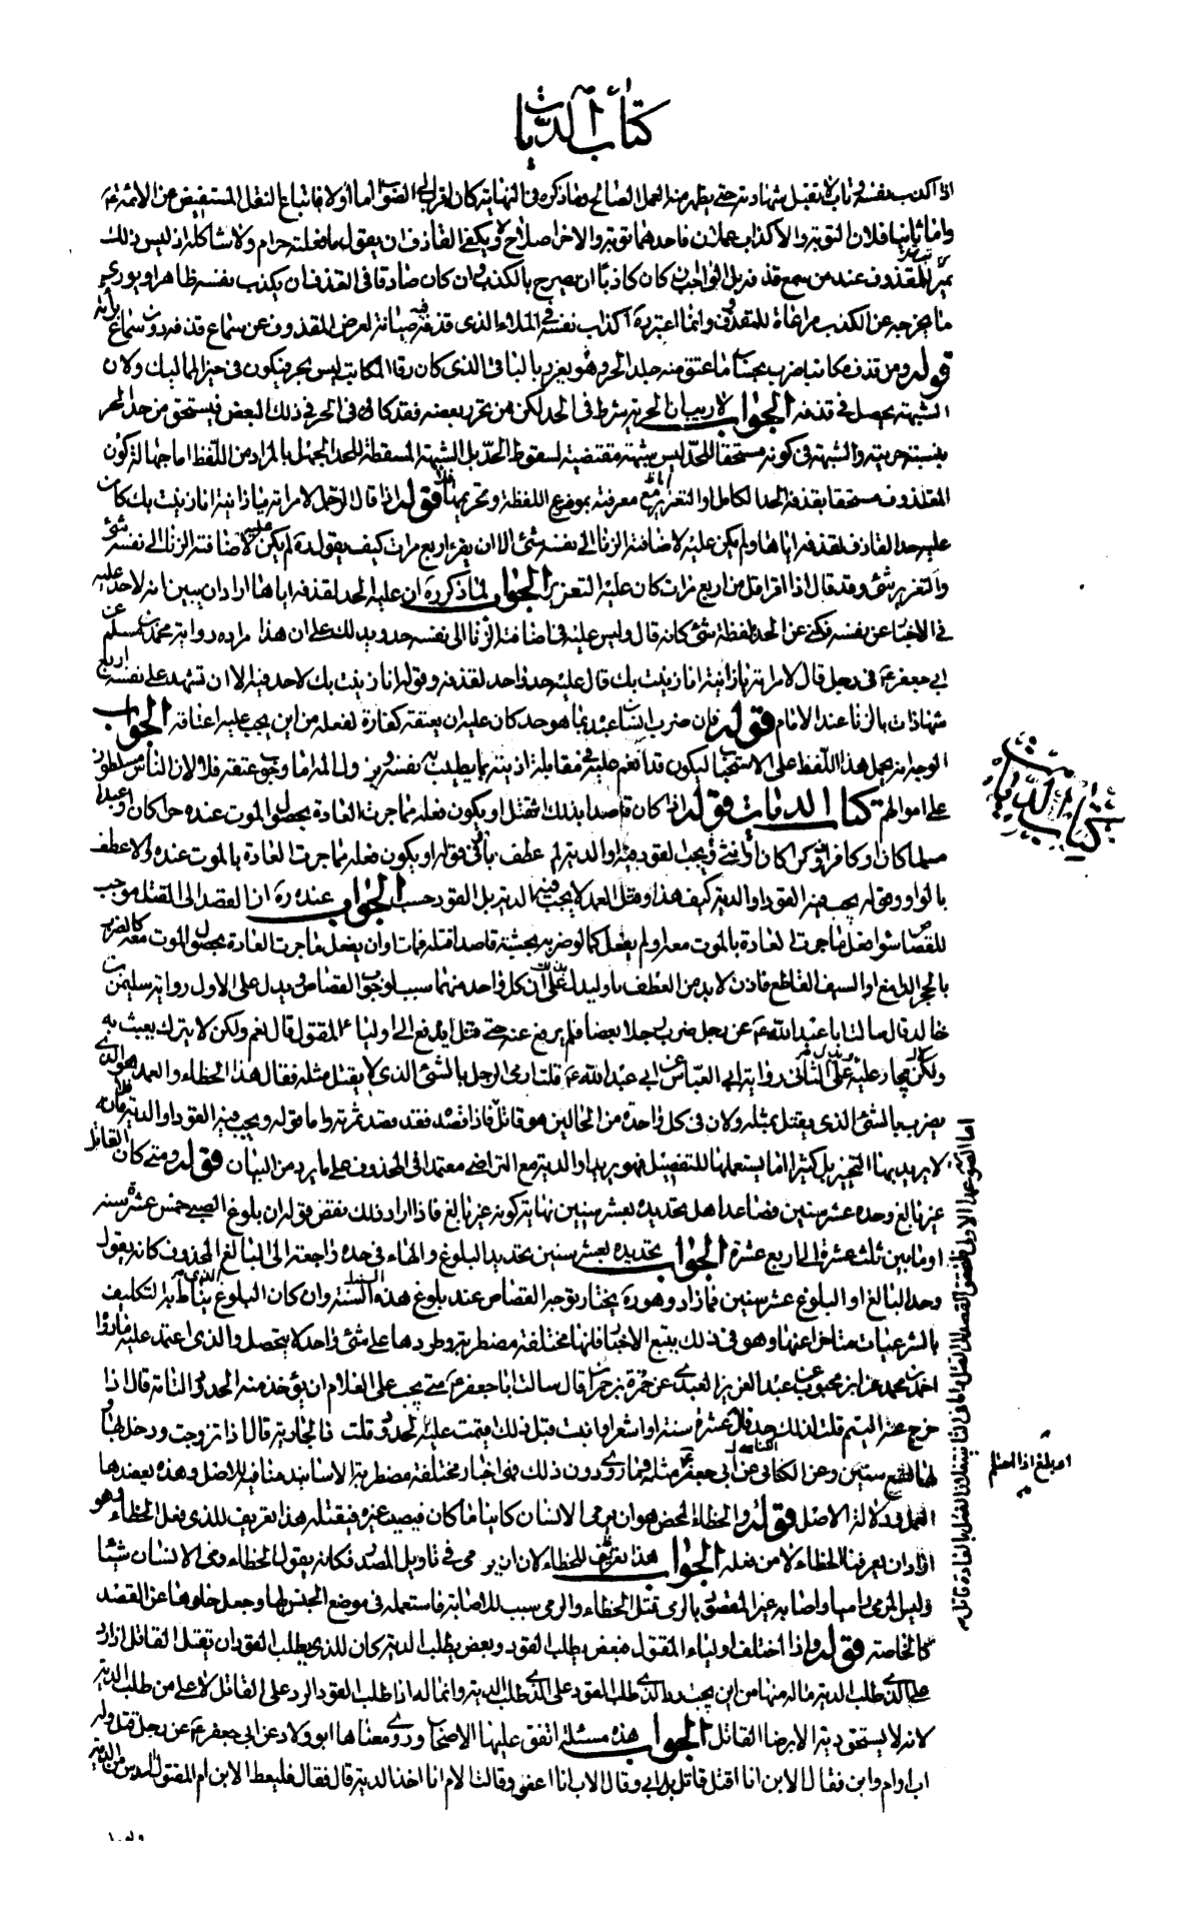 كتاب الديات
اذا اكذب نفسه وتاب لا تقبل شهادته حتى يظهر منه العمل الصالح وما ذكره فى النهاية كان اقرب الى الصواب اما اولا فاتباع النقل المستفيض عن الائمة ع
واما ثانيا فلان التوبة والاكذاب عملان فاحدهما توبة والاخر اصلاح ولا يكفى القاذف ان يقول ما فعلته حرام ولا شاكله اذ ليس ذلك
للمقذوف عند من سمع قذفه بل الواجب ان كان كاذبا ان يصرح بالكذب وان كان صادقا فى القذف ان يكذب نفسه ظاهرا ويورى
ما يخرجه عن الكذب مراعاة للمقذوف وانما اعتبر ره اكذاب نفسه فى الملاء الذى قذفه فيه صيانة لعرض المقذوف عن سماع قذفه دون سماع
قوله ومن قذف مكاتبا ضرب بحساب ما عتق منه حد الحر وهو يعزر بالباقى الذى كان رقا المكاتب ليس بحر فيكون فى حيز المماليك ولان
الشبهة يحصل فى قذفه الجواب لا ريب ان الحرية شرط فى الحد لكن من تحرر بعضه فقد كان فى الحر فى ذلك البعض فيستحق من حد الحر
بنسبة حريته والشبهة فى كونه مستحقا للحد ليس شبهة مقتضية لسقوط الحد بل الشبهة المسقطة للحد الجهل بالمراد من اللفظ اما جهالة كون
المقذوف مستحقا بقذفه الحد الكامل او التعزير مع معرفته بموضوع اللفظة وتحريمها فلا قوله اذا قال الرجل لامراته يا زانية انا زنيت بك كان
عليه حد القاذف لقذفه اياها ولم يكن عليه لاضافته الزنا الى نفسه شئ الا ان يقر اربع مرات كيف يقول ره لم يكن عليه لاضافته الزنا الى نفسه شئ
والتعزير شئ وقد قال اذا اقر اقل من اربع مرات كان عليه التعزير الجواب لما ذكر ره ان عليه الحد لقذفه اياها اراد ان يبين انه لا حد عليه
فى الاخبار عن نفسه فكنى عن الحد بلفظة شئ كانه قال وليس عليه فى اضافة الزنا الى نفسه حد ويدلك على ان هذا مراده رواية محمد بن مسلم عن
ابى جعفر ع فى رجل قال لامراته يا زانية انا زنيت بك قال عليه حد واحد لقذفه وقوله انا زنيت بك لا حد فيه الا ان تشهد على نفسه اربع
شهادات بالزنا عند الامام قوله فان ضرب انسان عبده بما هو حد كان عليه ان يعتقه كفارة لفعله من اين يجب عليه اعتاقه الجواب
الوجه انه يحمل هذا اللفظ على الاستحباب ليكون قد انعم عليه فى مقابلة اذيته بما يطيب به نفسه اما وجوب عتقه فلا لان الناس مسلطون
على اموالهم كتاب الديات قوله اذا كان قاصدا بذلك فقتل او يكون فعله مما جرت العادة بحصول الموت عنده حرا كان او عبدا
مسلما كان او كافرا ذكرا كان او انثى ويجب القود فيه او الدية لم عطف باقى قوله او يكون فعله مما جرت العادة بالموت عنده ولا عطف
بالواو وقوله يجب فيه القود او الدية كيف هذا وقتل العمد لا يجب فيه الدية بل القود حسب الجواب عنده ره ان القصد الى القتل موجب
للقصاص سواء فعل ما جرت العادة بالموت معه او لم يفعل كما لو ضربه بخشبة قاصدا قتله فمات او ان يفعل ما جرت العادة بحصول الموت معه كالضرب
بالحجر الدامغ او السيف القاطع فاذن لا بد من العطف باو ليدل على ان كل واحد منهما سبب لوجوب القصاص ويدل على الاول رواية سليمن بن
خالد قال سالت ابا عبد الله ع عن رجل ضرب رجلا بعصا فلم يرفع عنه حتى قتل ايدفع الى اولياء المقتول قال نعم ولكن لا يترك يعبث به
ولكن يجاز عليه ويدل على الثانى رواية ابى العباس عن ابى عبد الله ع قلت ارمى الرجل بالشئ الذى لا يقتل مثله فقال هذا الخطاء والعمد هو الذى
يضرب بالشئ الذى يقتل بمثله ولان فى كل واحدة من الحالين هو قاتل فاذا قصد فقد قصد ثمرته واما قوله ويجب فيه القود او الدية فانه
لا يريد بهذا التخيير بل كثيرا ما يستعملها للتفصيل فهو يريد او الدية مع التراضى معتمدا فى المحذوف على ما يرد من البيان قوله ومتى كان القاتل
غير بالغ وحده عشر سنين فصاعدا هل تحديده بعشر سنين نهاية كونه غير بالغ فاذا اراد ذلك نقض قوله ان بلوغ الصبى خمس عشرة سنة
او ما بين ثلث عشرة الى اربع عشرة الجواب تحديده بعشر سنين تحديد البلوغ والهاء فى حده راجعة الى البالغ المحذوف كانه يقول
وحد البالغ او البلوغ عشر سنين فما زاد وهو ره يختار توجه القصاص عند بلوغ هذه السنة وان كان البلوغ الذى يناط به التكليف
بالشرعيات متاخرا عنها وهو فى ذلك يتبع الاخبار فانها مختلفة مضطربة وطردها على شئ واحد لا يتحصل والذى اعتمد عليه ما رواه
احمد بن محمد عن ابن محبوب عن عبد العزيز العبدى عن حمزة بن حمران قال سالت ابا جعفر ع متى يجب على الغلام ان يؤخذ منه الحدود التامة قال اذا
خرج عنه اليتم قلت لذلك حد قال عشرة سنة او اشعر او انبت قبل ذلك اقيمت عليه الحدود قلت فالجارية قال اذا تزوجت ودخل بها و
لها تسع سنين وعن الكناسى عن ابى جعفر ع مثله وما روى دون ذلك فهى اخبار مختلفة مضطربة الاسانيد منافية للاصل وهذه يعضدها
العمل ودلالة الاصل قوله والخطاء المحض هو ان يرمى الانسان كاينا ما كان فيصيب غيره فيقتله هذا تعريف للذى فعل الخطاء وهو
اراد ان يعرفنا الخطاء لا من فعله الجواب هذا تعريف للخطاء لان ان يرمى فى تاويل المصدر فكانه يقول الخطاء رمى الانسان شيئا
وليس الرمى رامها واصابة غير المقصود بالرمى تمثل الخطاء والرمى سبب للاصابة فاستعمله فى موضع الجنس لها وجعل خلوها عن القصد
كالخاصة قوله واذا اختلف اولياء المقتول فبعض يطلب القود وبعض يطلب الدية كان للذى يطلب القود ان يقتل القاتل اذا رد
على الذى طلب الدية ماله منها من اين يجب رد الذى طلب القود على الذى طلب الدية وانما له اذا طلب القود الرد على القاتل لا على من طلب الدية
لانه لا يستحق دية الا برضا القاتل الجواب هذه مسئلة اتفق عليها الاصحاب وروى معناها ابو ولاد عن ابى جعفر ع عن رجل قتل وله
اب وام وابن فقال الابن انا اقتل قاتل ابى وقال الاب انا اعفو وقالت الام انا اخذ الدية قال فقال فليعط الابن ام المقتول السدس من الدية
كتاب الديات
او بلغ اذا احتلم